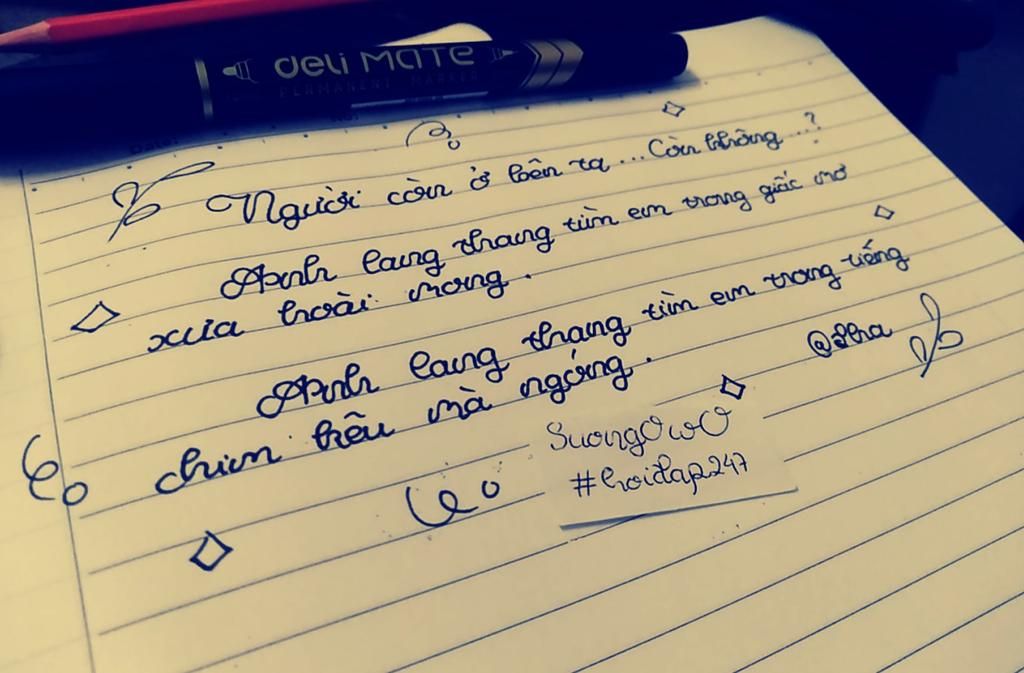 deli MATE
PERMANENT MARKER
Date:
No:
Người còn ở bên ta ... Còn không ...?
Anh lang thang tìm em trong giấc mơ
xưa hoài mong.
Anh lang thang tìm em trong tiếng
chim kêu mà ngóng.
SuongOwO
#hoidap247